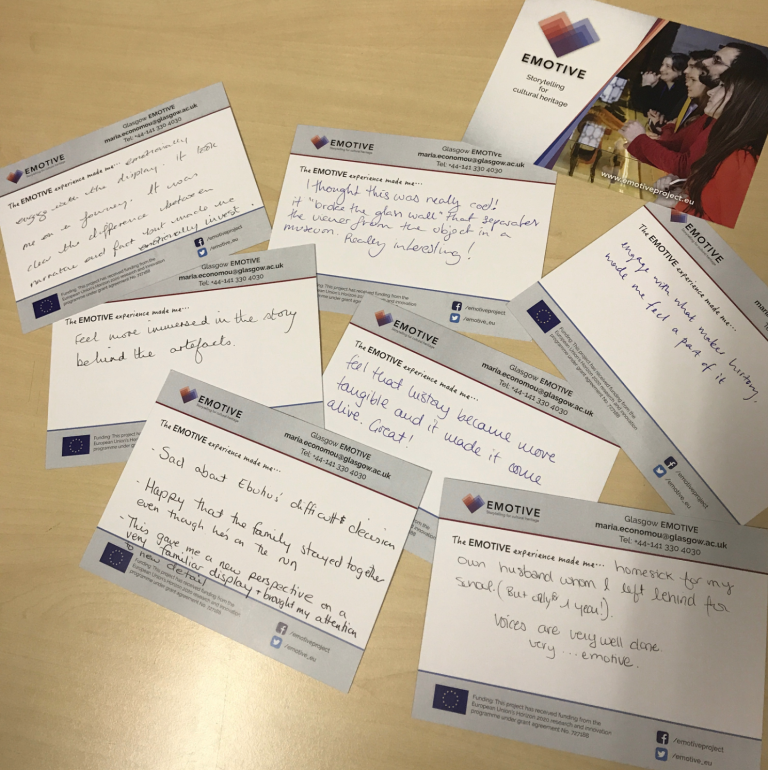 EMOTIVE
Storytelling
for
cultural heritage
www.emotiveproject.eu
EMOTIVE
Glasgow EMOTIVE
maria.economou@glasgow.ac.uk
Tel: +44-141 330 4030
The EMOTIVE experience made me... emotionally
engage with the display. It took
me on a journey. It was
clear the difference between
narrative and fact but made me
emotionally invest.
Funding: This project has received funding from the
European Union's Horizon 2020 research and innovation
programme under grant agreement No. 727188
/emotiveproject
/emotive_eu
EMOTIVE
Storytelling for cultural heritage
Glasgow EMOTIVE
maria.economou@glasgow.ac.uk
Tel: +44-141 330 4030
The EMOTIVE experience made me...
I thought this was really cool!
it "broke the glass wall" that separates
the viewer from the object in a
museum. Really interesting!
Funding: This project has received funding from the
European Union's Horizon 2020 research and innovation
/emotiveproject
/emotive_eu
EMOTIVE
The EMOTIVE experience made me...
engage with what makes history,
made me feel a part of it
Funding: This project has received funding from the
European Union's Horizon 2020 research and innovation
programme under grant agreement No. 727188
/emotiveproject
/emotive_eu
Glasgow EMOTIVE
maria.economou@glasgow.ac.uk
Tel: +44-141 330 4030
The EMOTIVE experience made me...
Feel more immersed in the story
behind the artefacts.
Funding: This project
European Union's Hor
programme under gra
EMOTIVE
Storytelling for cultural heritage
Glasgow EMOTIVE
maria.economou@glasgow.ac.uk
Tel: +44-141 330 4030
The EMOTIVE experience made me...
feel that history became more
tangible and it made it come
alive. Great!
EMOTIVE
Storytelling for cultural heritage
Glasgow EMOTIVE
maria.economou@glasgow.ac.uk
Tel: +44-141 330 4030
The EMOTIVE experience made me...
- Sad about Ebutius' difficult decision
- Happy that the family stayed together
even though he's on the run
- This gave me a new perspective on a
very familiar display + brought my attention
to new detail
Funding: This project has received funding from the
European Union's Horizon 2020 research and innovation
programme under grant agreement No. 727188
/emotiveproject
/emotive_eu
EMOTIVE
Storytelling for cultural heritage
Glasgow EMOTIVE
maria.economou@glasgow.ac.uk
Tel: +44-141 330 4030
The EMOTIVE experience made me... homesick for my
own husband whom I left behind for
school. (But only 1 year!).
Voices are very well done.
very ... emotive.
Funding: This project has received funding from the
European Union's Horizon 2020 research and innovation
programme under grant agreement No. 727188
/emotiveproject
/emotive_eu